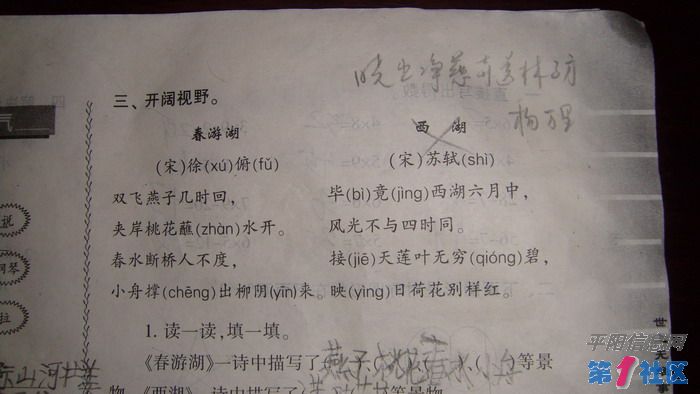 晓出净慈寺送林子方
杨万里
三、开阔视野。
春游湖
(宋)徐(xú)俯(fǔ)
双飞燕子几时回，
夹岸桃花蘸(zhàn)水开。
春水断桥人不度，
小舟撑(chēng)出柳阴(yīn)来。
西湖
(宋)苏轼(shì)
毕(bì)竟(jìng)西湖六月中，
风光不与四时同。
接(jiē)天莲叶无穷(qióng)碧，
映(yìng)日荷花别样红。
1. 读一读，填一填。
《春游湖》一诗中描写了(燕子)(桃花)(春水)(小舟)等景
物。《西湖》一诗中描写了
气
说
钢琴
拉
世
平阳信息网
第1社区